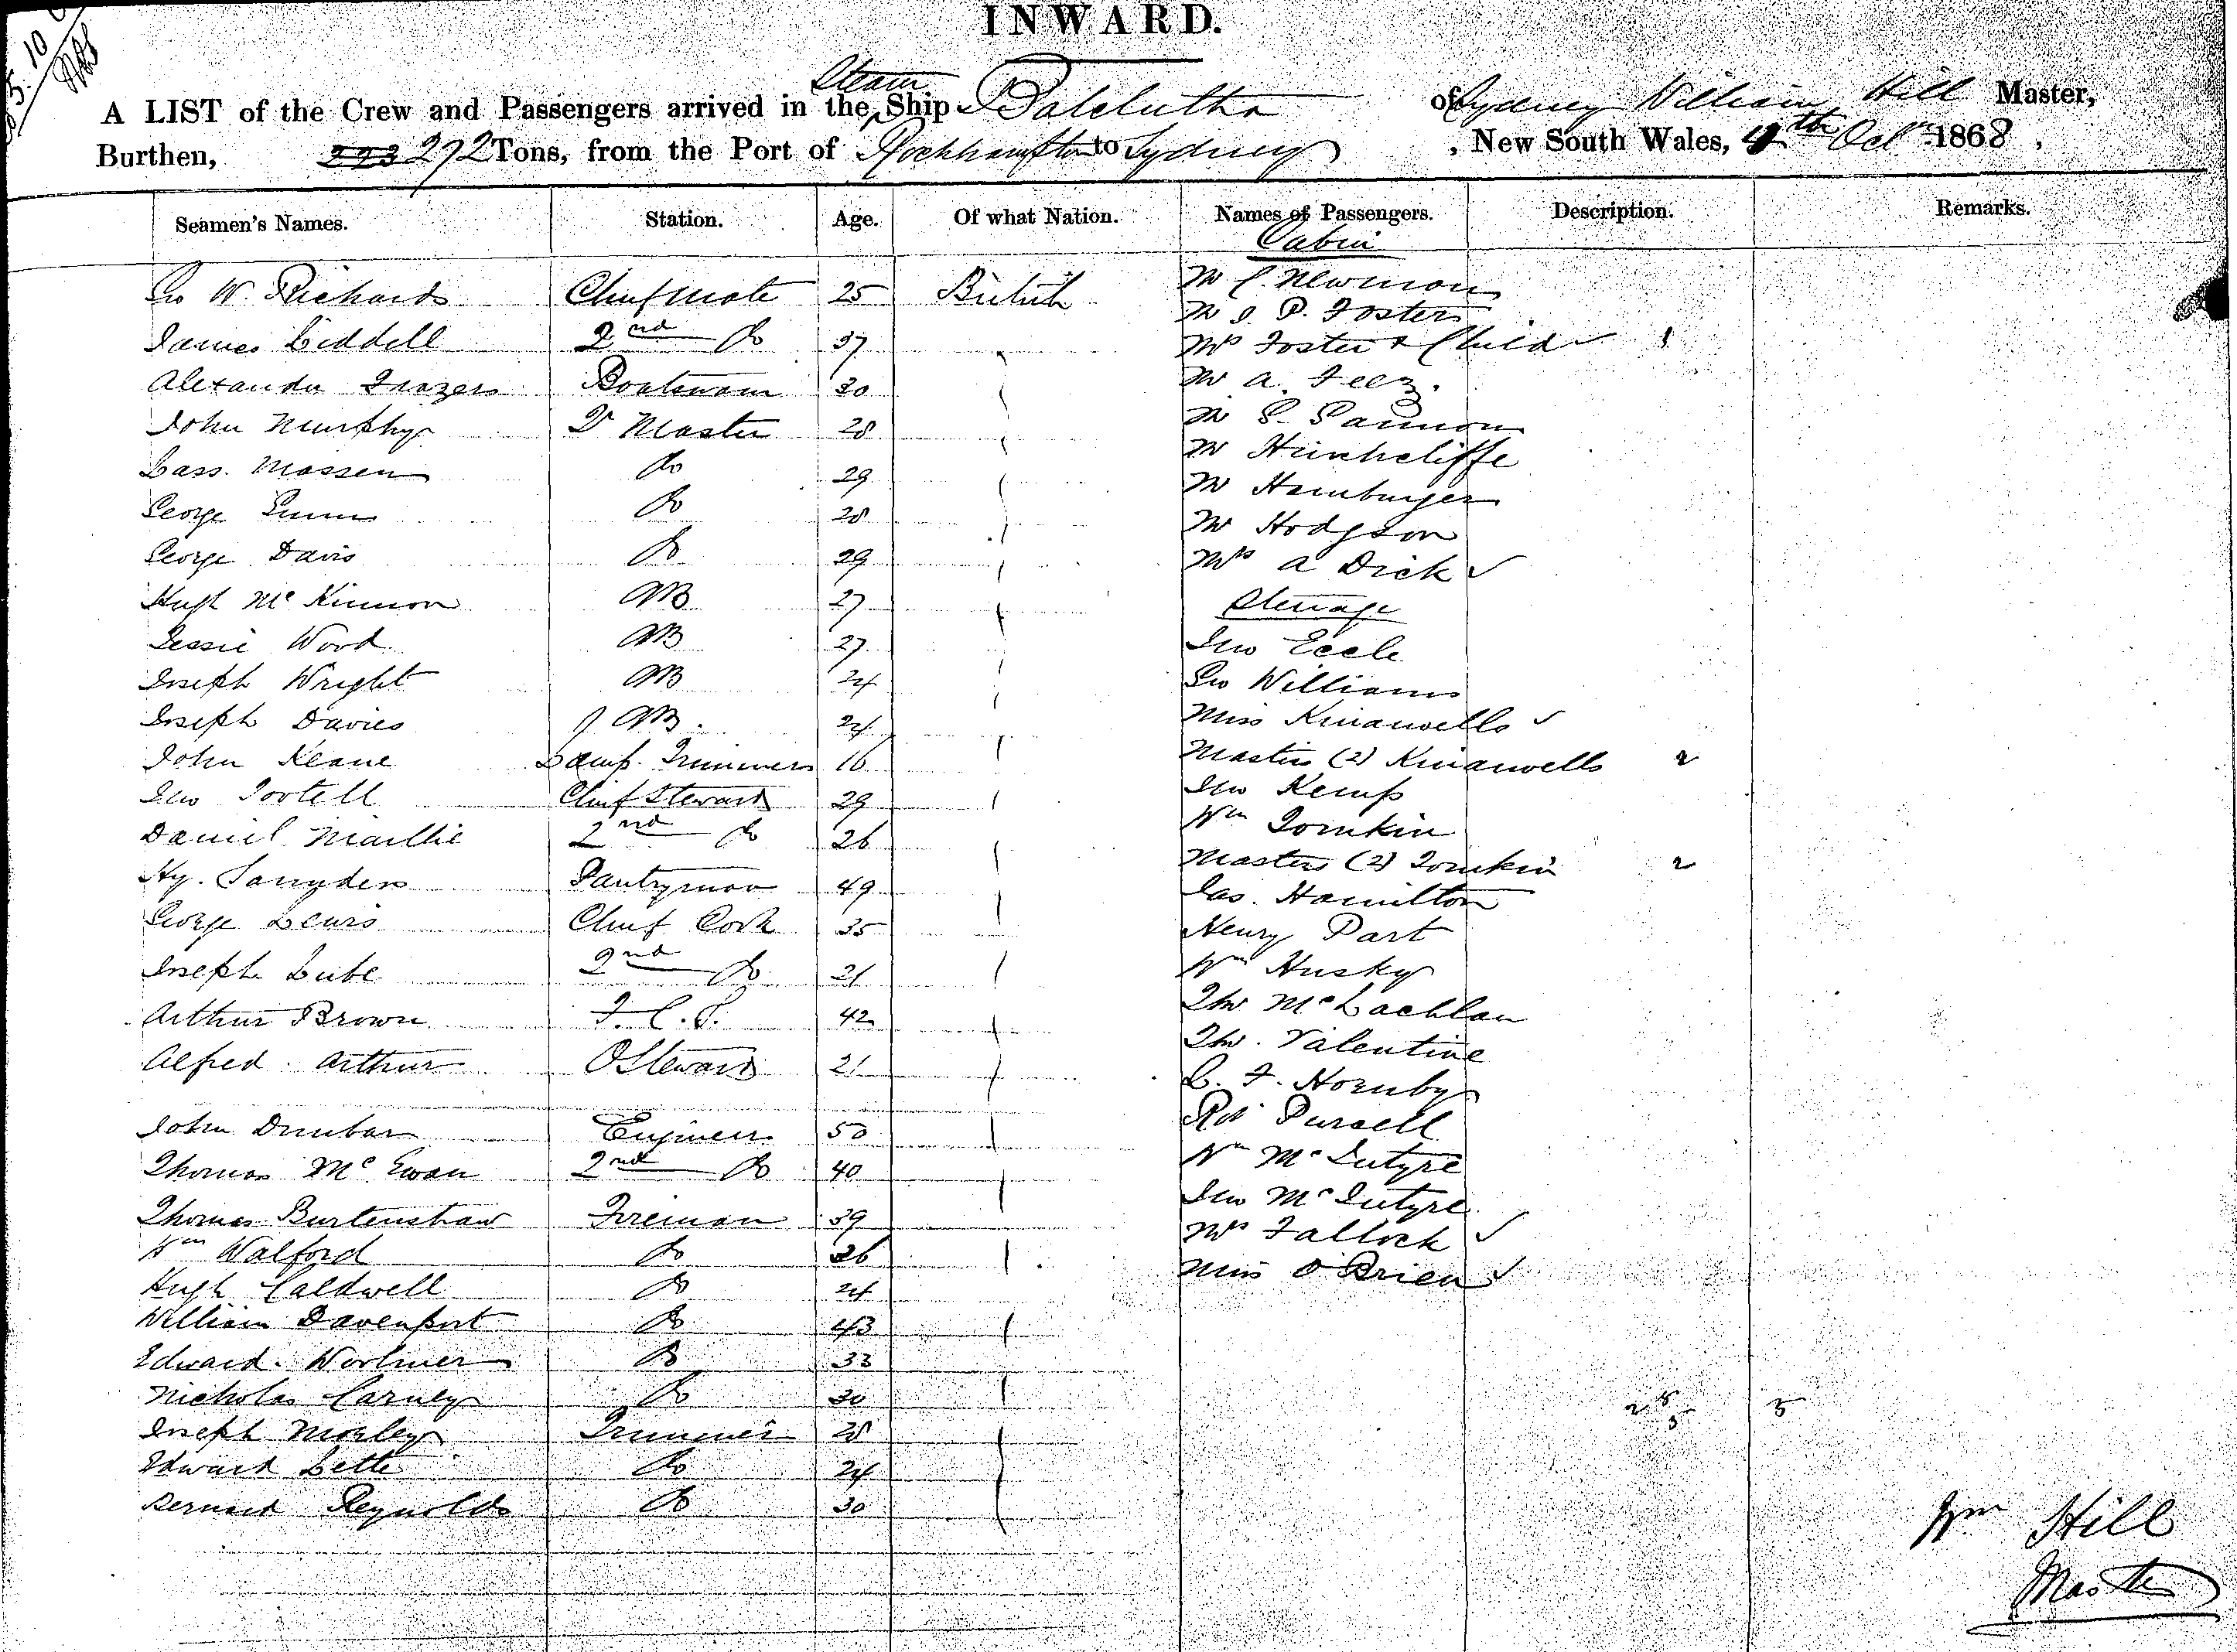 INWARD.
Steam
A LIST of the Crew and Passengers arrived in the Ship Balclutha of Sydney William Hill Master,
Burthen, 272 Tons, from the Port of Rockhampton to Sydney, New South Wales, 4th Oct 1868.
Seamen's Names. Station. Age. Of what Nation. Names of Passengers. Description. Remarks.
Cabin
Geo W. Richards Chief Mate 25 British Mr C. Newman
Mr J. P. Foster
James Liddell 2nd Do 37 Mrs Foster & Child 1
Alexander Frazer Boatswain 30 Mr A. Feez.
John Murphy Q Master 28 Mr P. Pannon
Lass. Massen Do 29 Mr Hinchcliffe
Mr Hamburger
George Gunn Do 28 Mr Hodgson
George Davis Do 29 Mrs A Dick
Hugh McKinnon AB 27 Steerage
Jessie Wood AB 27 Jno Eccle
Joseph Wright AB 24 Geo Williams
Joseph Davies AB. 24 Miss Kinanwells
John Keane Lamp. Trimmer 16 Masters (2) Kinanwells 2
Jno Tootell Chief Steward 29 Jno Kemp
Wm Tomkin
Daniel Maillie 2nd Do 26 Masters (2) Tomkin 2
Hy. Pantryman 49 Jas. Hamilton
George Lewis Chief Cook 35 Henry Part
Joseph Lube 2nd Do 21 Wm Husky
Arthur Brown F. C. P. 42 Tho McLachlan
Tho. Valentine
Alfred Arthur O Steward 21 C. F. Hornby
John Dunbar Engineer 50 Rob Purcell
Thomas McEwan 2nd Do 40 Wm McIntyre
Jno McIntyre
Thomas Burtenshaw Fireman 39 Mrs Fallock
Wm Walford Do 26 Miss O'Brien
Hugh Caldwell Do 24
William Davenport Do 43
Edward. Worlmer Do 33
Nicholas Carney Do 30
Joseph Morley Trimmer 28
Edward Lette Do 24
Bernard Reynolds Do 30
Wm Hill
Master